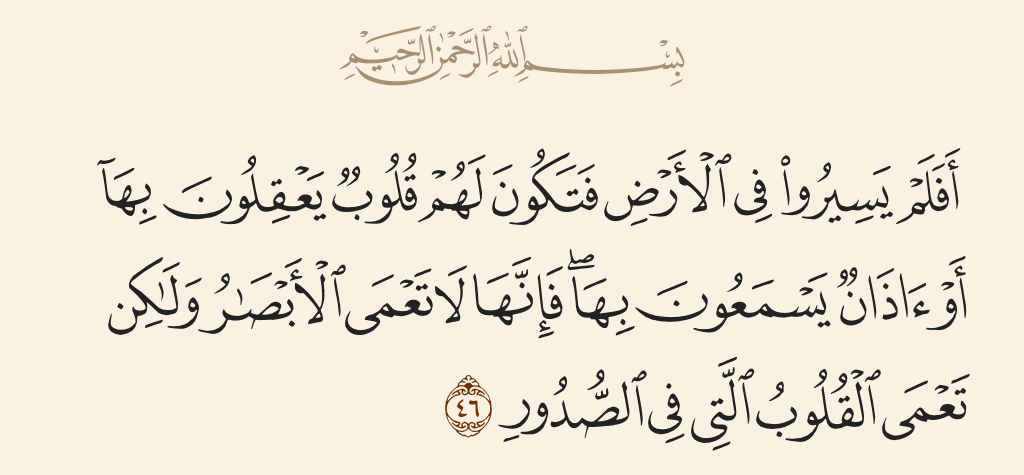 بِسْمِ ٱللَّهِ ٱلرَّحْمَٰنِ ٱلرَّحِيمِ
أَفَلَمْ يَسِيرُوا۟ فِى ٱلْأَرْضِ فَتَكُونَ لَهُمْ قُلُوبٌۭ يَعْقِلُونَ بِهَآ
أَوْ ءَاذَانٌۭ يَسْمَعُونَ بِهَا ۖ فَإِنَّهَا لَا تَعْمَى ٱلْأَبْصَـٰرُ وَلَـٰكِن
تَعْمَى ٱلْقُلُوبُ ٱلَّتِى فِى ٱلصُّدُورِ ٤٦